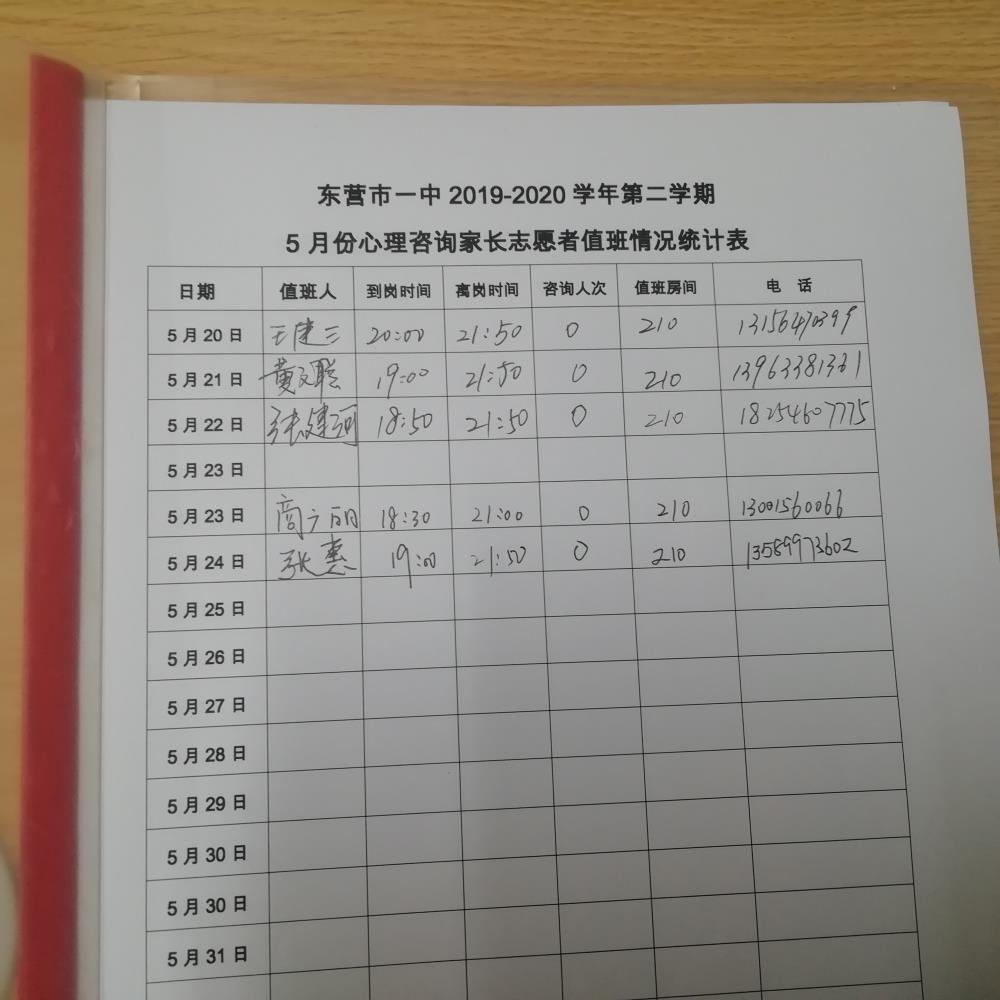 东营市一中 2019-2020 学年第二学期
5 月份心理咨询家长志愿者值班情况统计表
日期 值班人 到岗时间 离岗时间 咨询人次 值班房间 电 话
5 月 20 日 王建三 20:00 21:50 0 210 13156470399
5 月 21 日 黄 聪 19:00 21:50 0 210 13963381331
5 月 22 日 张建河 18:50 21:50 0 210 18254607775
5 月 23 日
5 月 23 日 商 丽 18:30 21:00 0 210 13001560066
5 月 24 日 张惠 19:00 21:50 0 210 13589973602
5 月 25 日
5 月 26 日
5 月 27 日
5 月 28 日
5 月 29 日
5 月 30 日
5 月 30 日
5 月 31 日